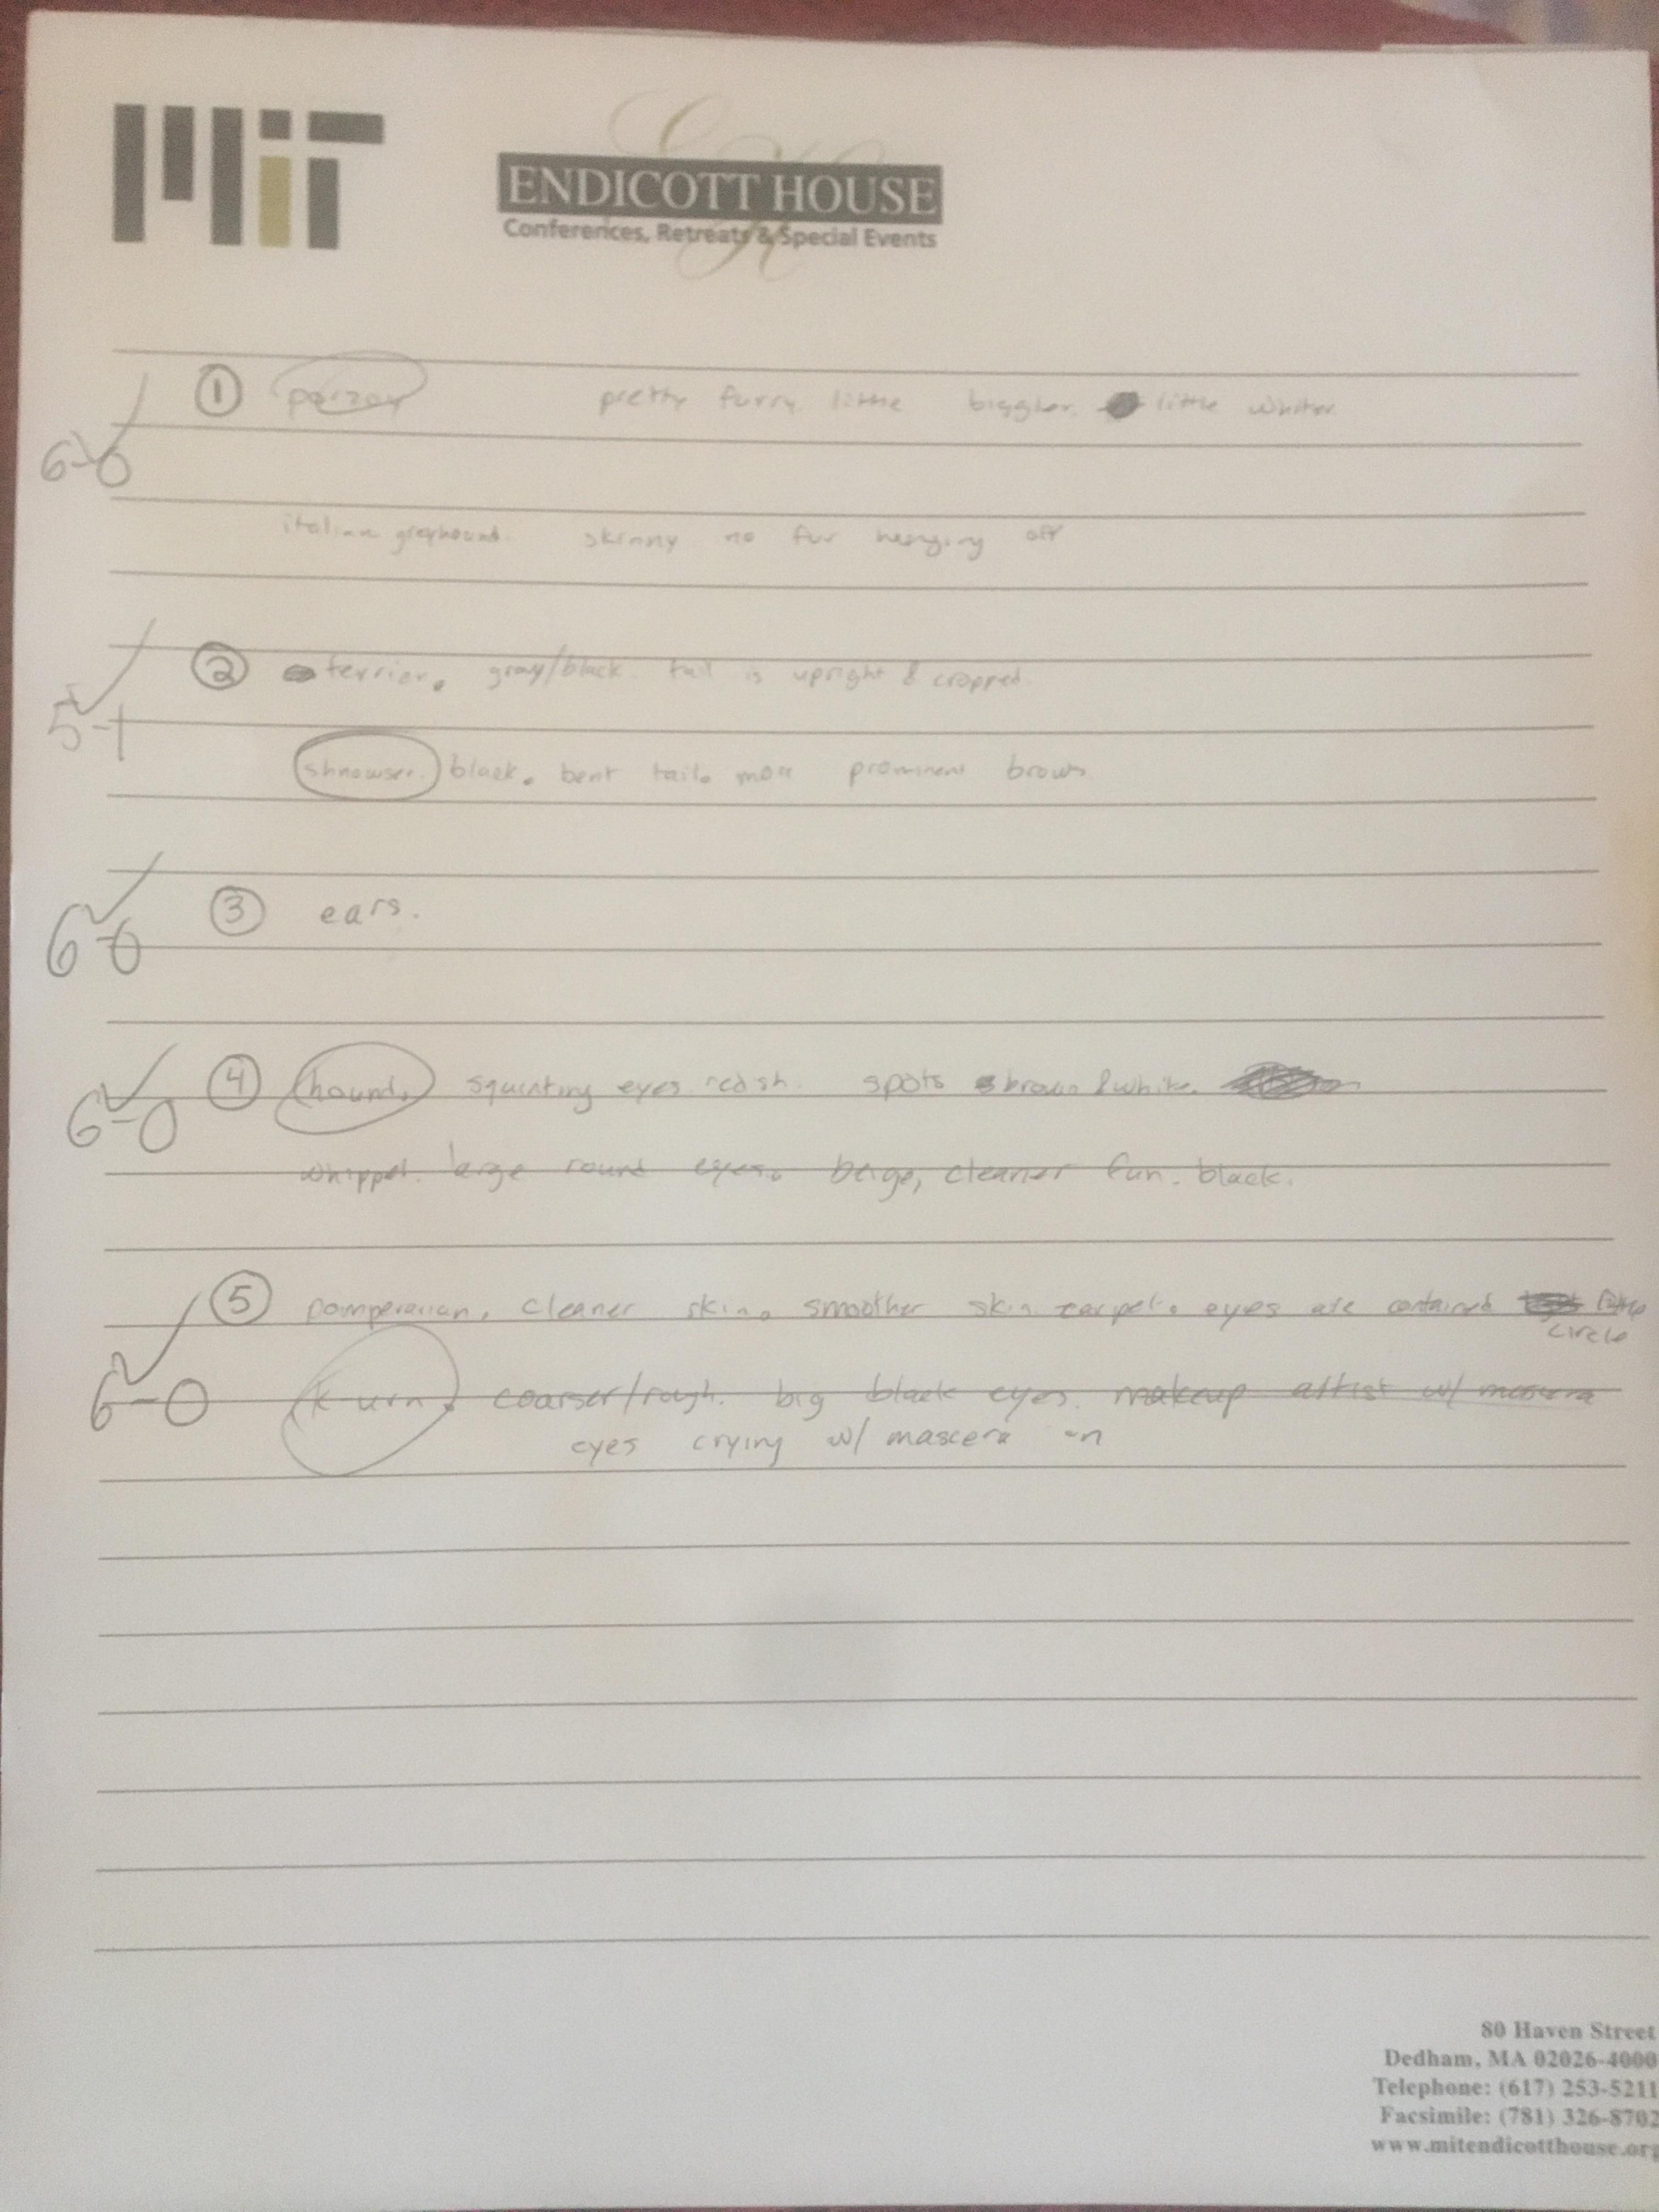 MIT
ENDICOTT HOUSE
Conferences, Retreats & Special Events
① porzoy pretty furry little biggler. little whiter
6-0
italian greyhound. skinny no fur hanging off
② terrier. gray/black. tail is upright & cropped.
5-1
shnowser. black. bent tail. more prominent brows
③ ears.
6-0
④ hound. squinting eyes. redsh. spots brown & white.
6-0
whippet. large round eyes. beige, cleaner fur. black.
⑤ pomperanian. cleaner skin. smoother skin. eyes are contained
circle
6-0
k urn. coarser/rough. big black eyes. makeup attist w/ mascera
eyes crying w/ mascera on
80 Haven Street
Dedham, MA 02026-4000
Telephone: (617) 253-5211
Facsimile: (781) 326-8702
www.mitendicotthouse.org